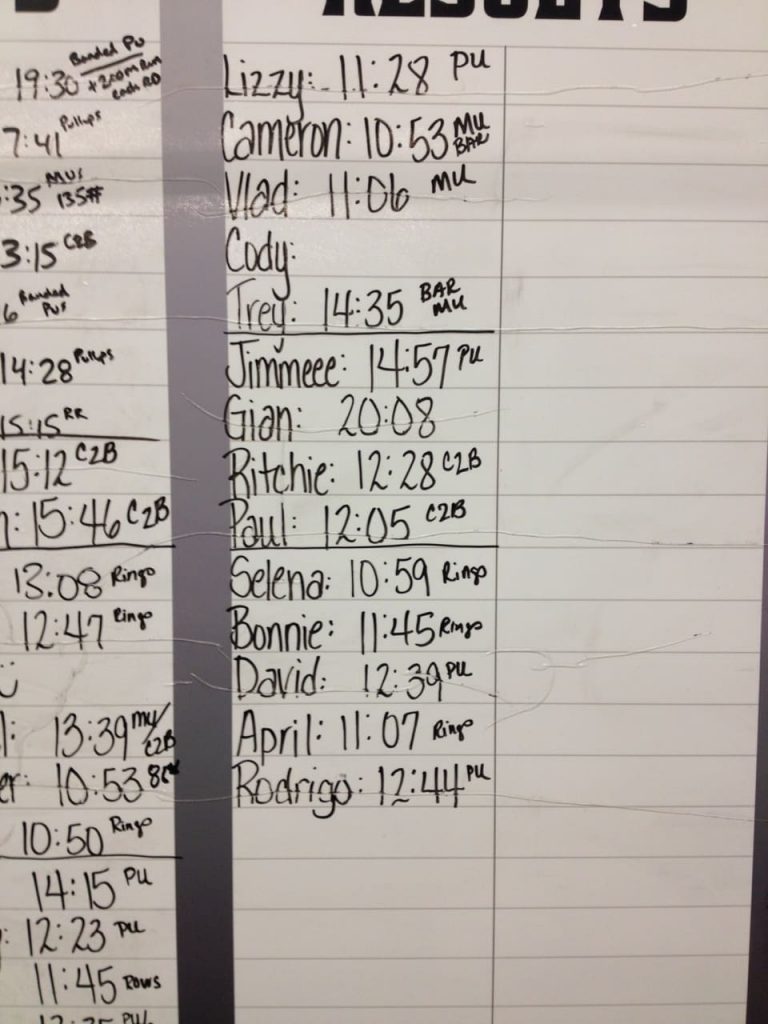 RESULTS
19:30 Banded PU + 200m Run each RD
7:41 Pullups
:35 MUs 135#
3:15 C2B
6 Banded PUs
14:28 Pullups
15:15 RR
15:12 C2B
: 15:46 C2B
13:08 Ring
12:47 Ring
: 13:39 mu/C2B
er: 10:53
10:50 Ring
14:15 PU
: 12:23 PU
11:45 Rows
Lizzy: 11:28 PU
Cameron: 10:53 MU BAR
Vlad: 11:06 MU
Cody:
Trey: 14:35 BAR MU
Jimmeee: 14:57 PU
Gian: 20:08
Ritchie: 12:28 C2B
Paul: 12:05 C2B
Selena: 10:59 Ring
Bonnie: 11:45 Ring
David: 12:39 PU
April: 11:07 Ring
Rodrigo: 12:44 PU